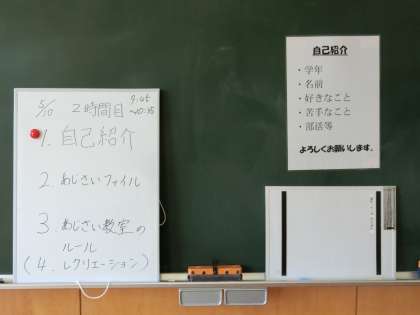 5/10 2時間目 9:45
~10:35
1. 自己紹介
2. あじさいファイル
3. あじさい教室の
ルール
(4. レクリエーション)
自己紹介
・学年
・名前
・好きなこと
・苦手なこと
・部活等
よろしくお願いします。